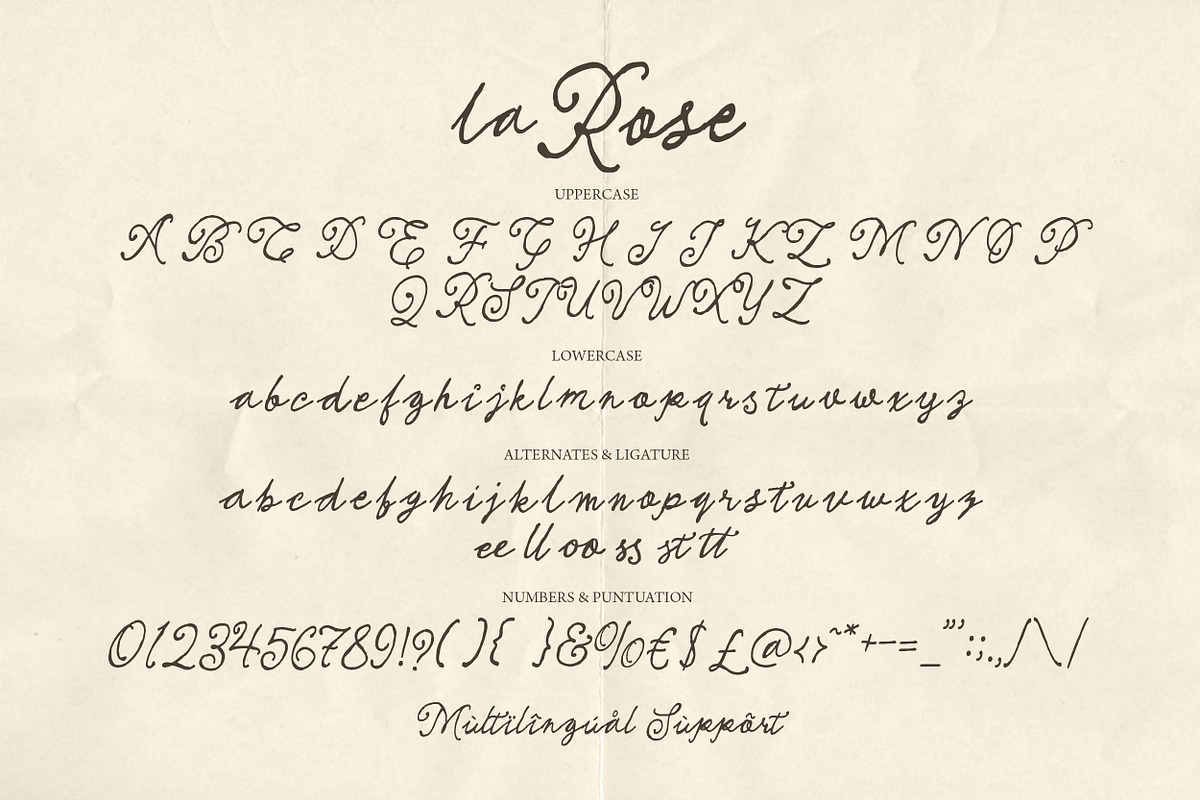 la Rose
UPPERCASE
A B C D E F G H I J K L M N O P
Q R S T U V W X Y Z
LOWERCASE
a b c d e f g h i j k l m n o p q r s t u v w x y z
ALTERNATES & LIGATURE
a b c d e f g h i j k l m n o p q r s t u v w x y z
ee ll oo ss st tt
NUMBERS & PUNTUATION
0123456789!?(){ }&%€$£@<>~*+-=_"':;.,/\/
Mùltïlîngúål Sùppõrt